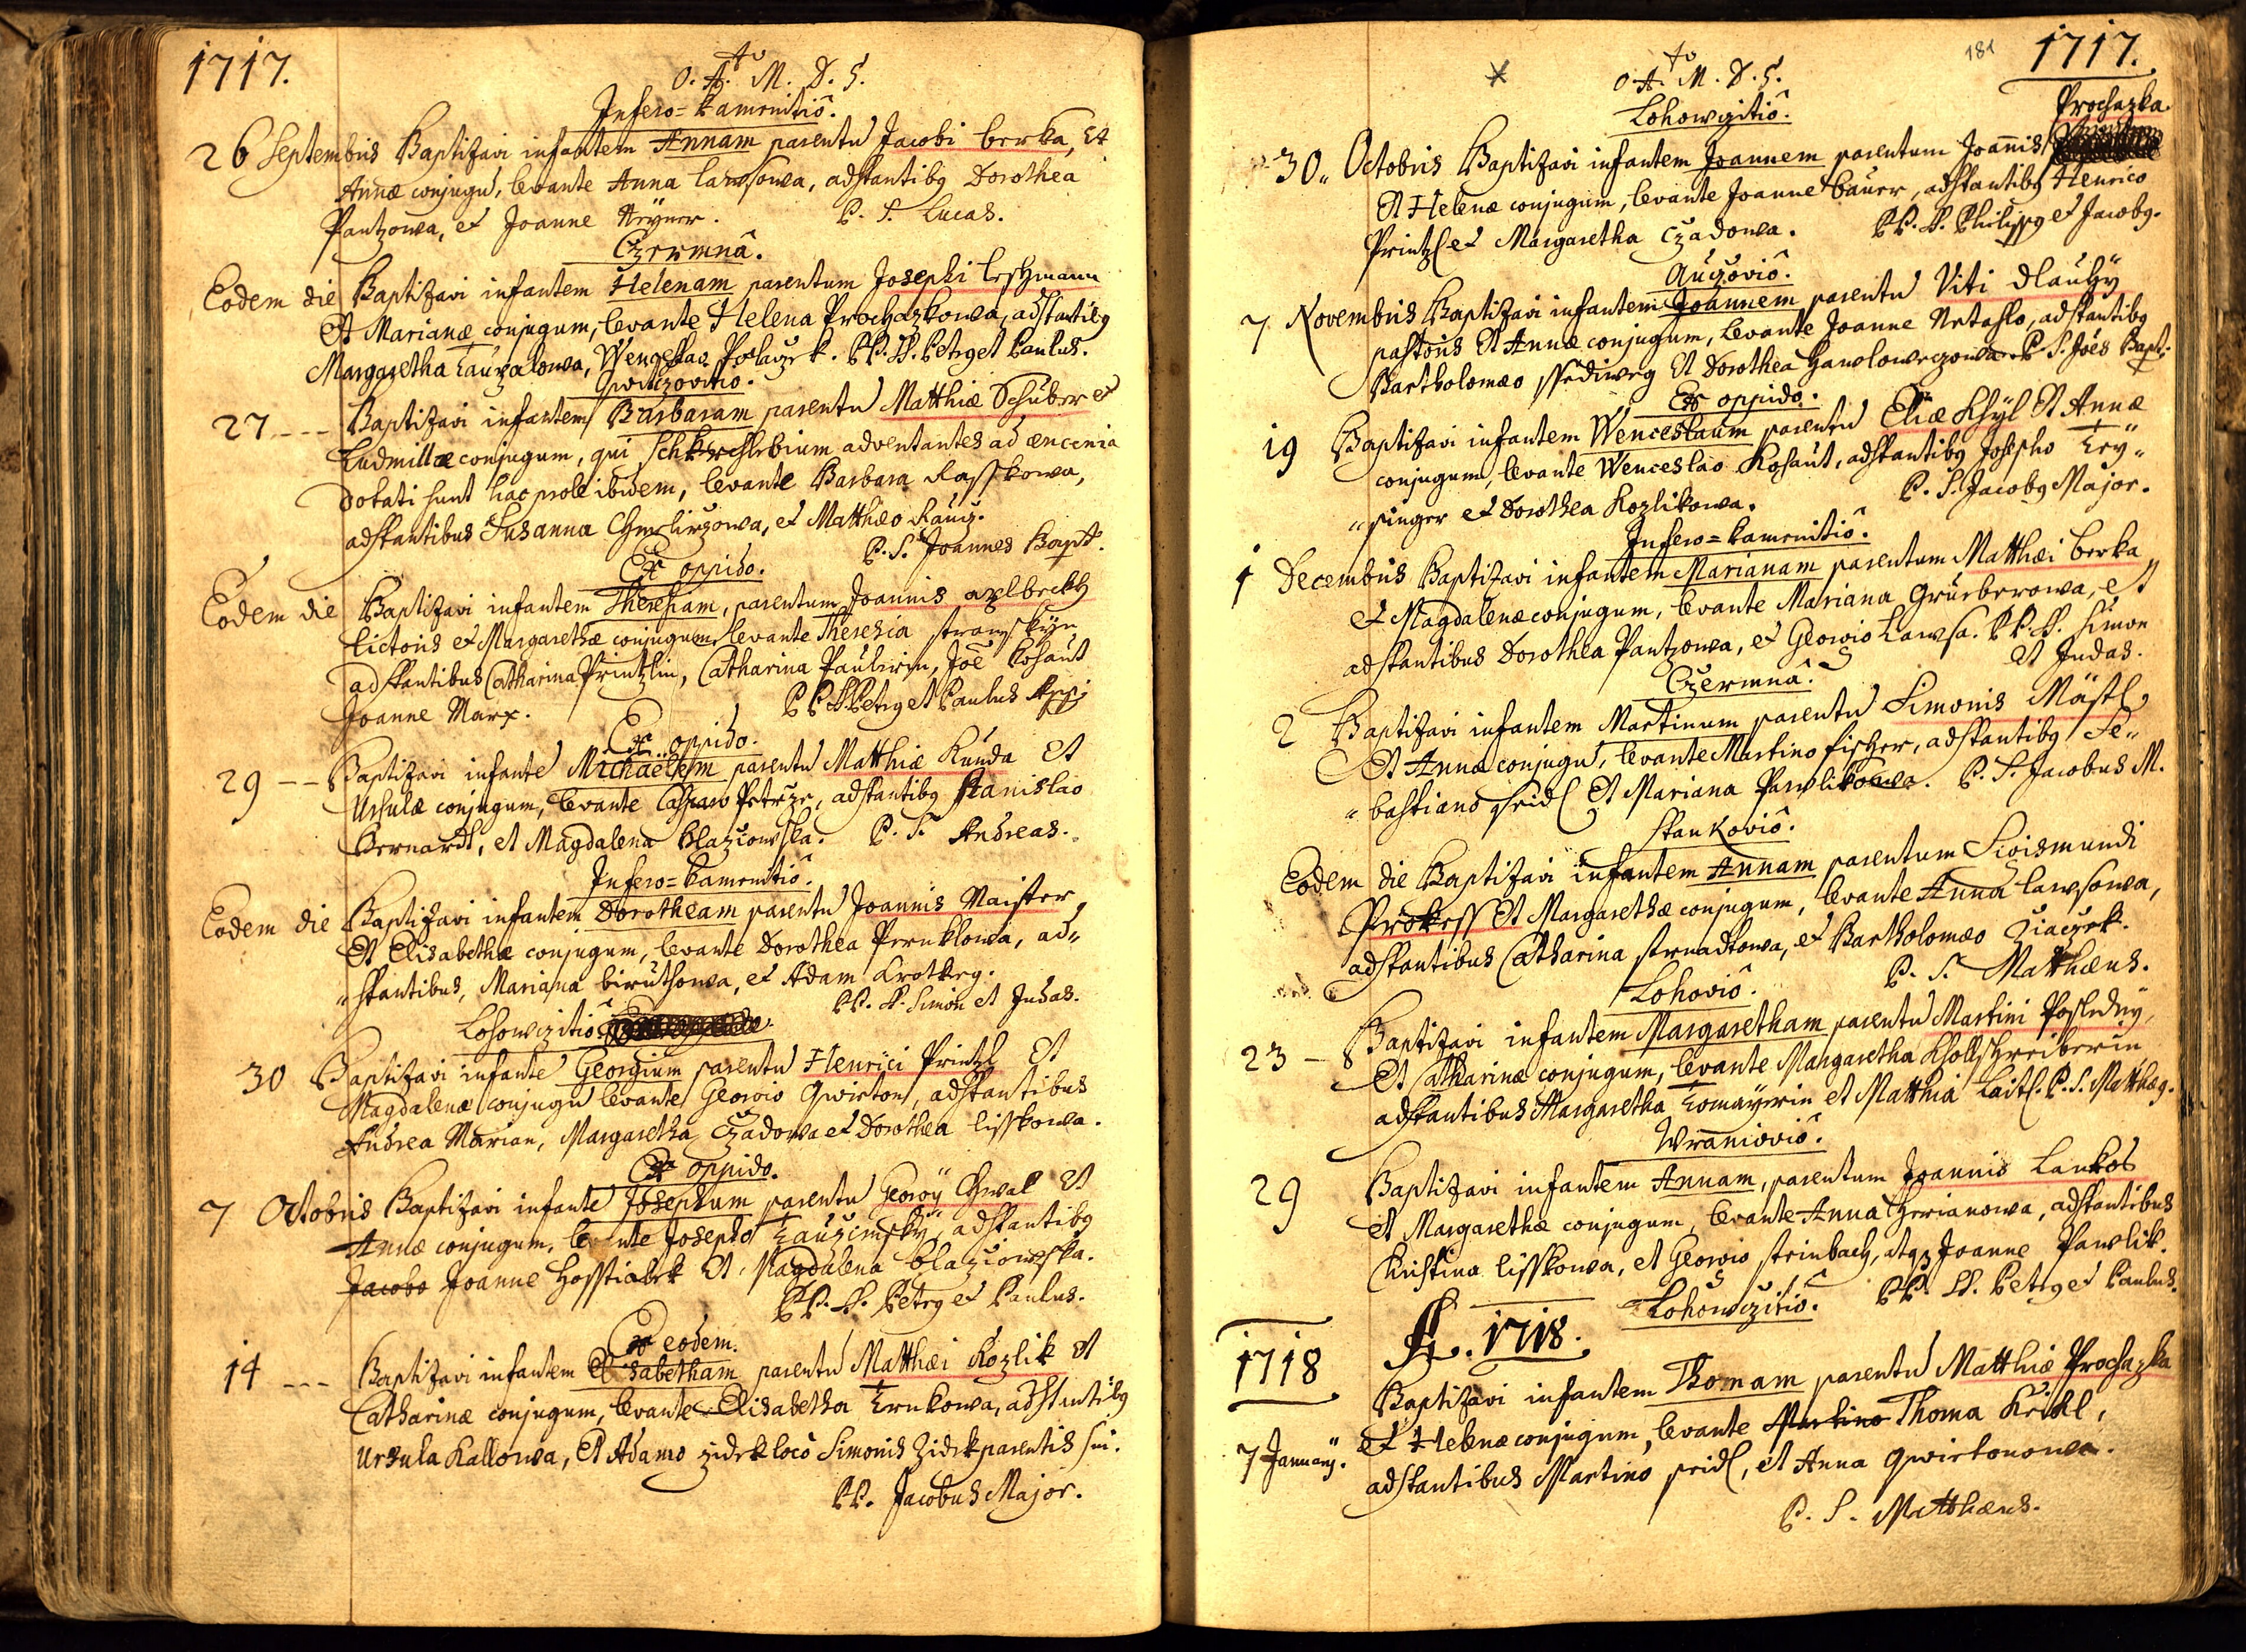 1717.
O. A. M. D. G.
Infero=Kamenitio.
26 Septembris Baptizavi infantem Annam parentu Jacobi berka, Et
Annæ conjugu, levante Anna lawsowa, adstantibg Dorothea
Pantzowa, et Joanne P. S. Lucas.
Czermna.
Eodem die Baptizavi infantem Helenam parentum Josephi leschmann
Et Marianæ conjugum, levante Helena Prochazkowa, adstantibg
Margaretha Wenceslao Polaczek. PP. SS. Petrg et Paulus.
27 --- Baptizavi infantem Barbaram parentu Matthiæ Schuber et
Ludmillæ conjugum, qui adventantes ad encenia
dotati sunt hac prole ibidem, levante Barbara Rasskowa,
adstantibus Susanna et Matthæo
P. S. Joannes Bapt.
Ex oppido.
Eodem die Baptizavi infantem Theresiam, parentum Joannis
lictoris et Margarethæ conjugum, levante Theresia
adstantibus Catharina Printzlin, Catharina Joe Kohaut
Joanne Marx. PP. SS. Petrg et Paulus App:
Ex oppido.
29 -- Baptizavi infante Michaëlem parentu Matthiæ Kunda Et
Ursulæ conjugum, levante Casparo adstantibg Stanislao
Bernardt, et Magdalena P. S. Andreas.
Infero=Kamenitio.
Eodem die Baptizavi infantem Dorotheam parentu Joannis Maister
Et Elisabethæ conjugum, levante Dorothea Pernklowa, ad„
„stantibus, Mariana biruthowa, et Adam
PP. SS. Simon et Judas.
Lohowczitio.
30 Baptizavi infante Georgium parentu Henrici Printzl Et
Magdalenæ conjugu levante Georgio Qwirton, adstantibus
Andrea Marian, Margaretha Czadowa et Dorothea lisskowa.
Ex oppido.
7 Octobris Baptizavi infante Josephum parentu Georgÿ Chwal Et
Annæ conjugum, levante Josepho adstantibg
Jacobo Joanne Hosstialek Et Magdalena
PP. SS. Petrg et Paulus.
Ex eodem.
14 --- Baptizavi infantem Elisabetham parentu Matthæi Kozlik Et
Catharinæ conjugum, levante Elisabetha adstantibg
Ursula Kallowa, Et Adamo zidek loco Simonis Zidek parentis sui.
PP. Jacobus Major.
181 1717.
O. A. M. D. G.
Lohowczitio.
Prochazka.
30„ Octobris Baptizavi infantem Joannem parentum Joannis
Et Helenæ conjugum, levante Joanne bauer, adstantibg Henrico
Printzl et Margaretha Czadowa. PP. SS. Philippg et Jacobg.
Auczovio.
7 Novembris Baptizavi infantem Joannem parentu Viti dlauhÿ
pastoris Et Annæ conjugum, levante Joanne adstantibg
Bartholomæo Et Dorothea P. S. Joes Bapt:
Ex oppido.
19 Baptizavi infantem Wenceslaum parentu Eliæ Khÿl Et Annæ
conjugum, levante Wenceslao Kohaut, adstantibg Josepho
et Dorothea Kozlikowa. P. S. Jacobg Major.
Infero=kamenitio.
1 Decembris Baptizavi infantem Marianam parentum Matthæi berka
et Magdalenæ conjugum, levante Mariana Gruberowa, et
adstantibus Dorothea Pantzowa, et Georgio Lawsa. PP. SS. Simon
et Judas.
Czermna.
2 Baptizavi infantem Martinum parentu Simonis Mästl
Et Annæ conjugu, levante Martino fischer, adstantibg Se„
„bastiano seidl Et Mariana Pawlikowa. P. S. Jacobus M.
Stankovio.
Eodem die Baptizavi infantem Annam parentum Sigismundi
Prokess Et Margarethæ conjugum, levante Anna lawsowa,
adstantibus Catharina strnadtowa, et Bartholomæo
P. S. Matthæus.
Lohovio.
23 - Baptizavi infantem Margaretham parentu Martini Poslednÿ
Et Catharinæ conjugum, levante Margaretha
adstantibus Margaretha et Matthia P. S. Matthæg.
Wraniovio.
29 Baptizavi infantem Annam, parentum Joannis Lankos
et Margarethæ conjugum, levante Anna adstantibus
Christina lisskowa, et Georgio steinbach, atqz Joanne Pawlik.
PP. SS. Petrg et Paulus.
Lohowczitio.
1718 A. 1718.
Baptizavi infantem Thomam parentu Matthiæ Prochazka
7 Januarÿ. et Helenæ conjugum, levante Martino Thoma Krikl,
adstantibus Martino seidl, et Anna qwirtonowa.
P. S. Matthæus.